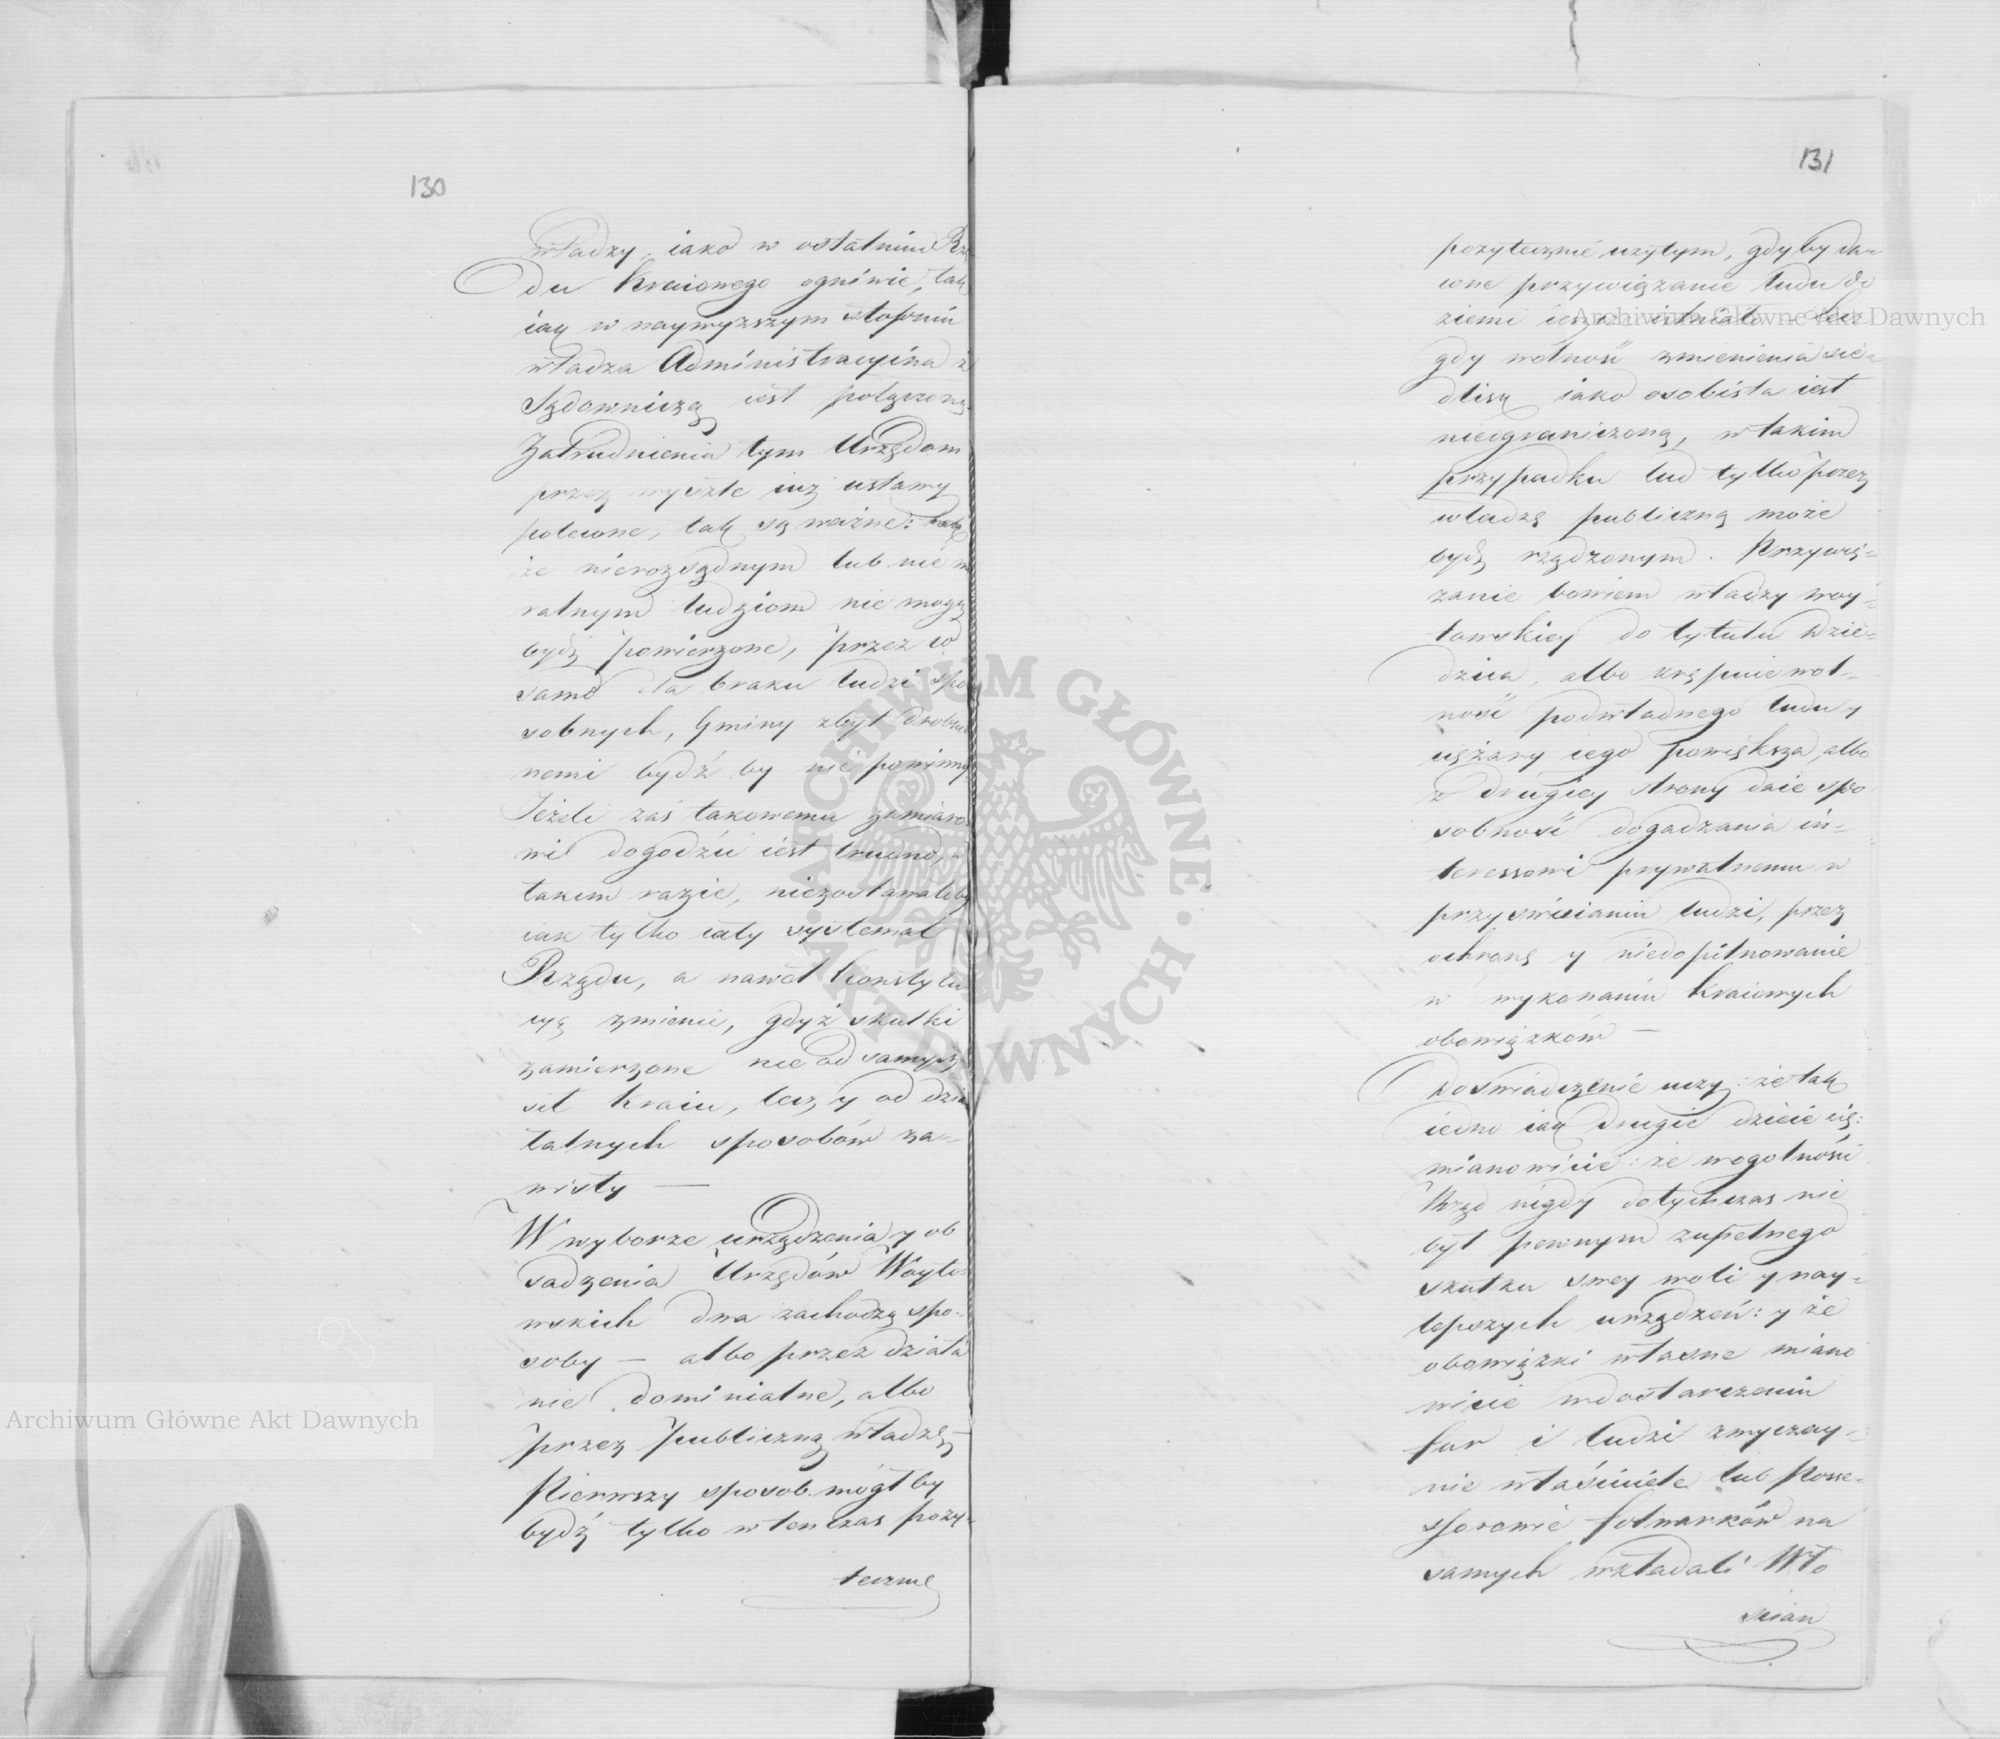 130
władzy, iako w ostatnim Rzą
du kraiowego ogniwie, tak
iak w naywyższym stopniu
władza Administracyina z
Sądowniczą iest połączona.
Zatrudnienia tym Urzędom
przez wyszłe iuż ustawy
polecone, tak są ważne:
że nierozsądnym lub nie mo
ralnym ludziom nie mogą
bydź powierzone, przez co
samo dla braku ludzi spo
sobnych, Gminy zbyt drobne
nemi bydź by nie powinny
Jeżeli zaś takowemu zamiaro
wi dogodzić iest trudno, w
takim razie, niezostawałoby
iak tylko cały systemat
Rządu, a nawet konstytu
cyą zmienić, gdyż skutki
zamierzone nie od samych
sił kraiu, lecz y od dzia
łalnych sposobów za=
wisły —
W wyborze urządzenia y ob
sadzenia Urzędów Woyto
wskich dwa zachodzą spo=
soby — albo przez działa
nie dominialne, albo
przez publiczną władzę —
Pierwszy sposob mógł by
bydź tylko wtenczas poży=
teczne
131
pożytecznie użytym, gdyby da=
wne przywiązanie ludu do
ziemi ieszcze istniało — lecz
gdy wolność zmienienia sie=
dlisk iako osobista iest
nieograniczoną, w takim
przypadku lud tylko przez
władzę publiczną może
bydź rządzonym. Przywią=
zanie bowiem władzy woy=
towskiey do tytułu Dzie=
dzica, albo krępuie wol=
ność podwładnego ludu y
ciężary iego powiększa, albo
z drugiey strony daie spo
sobność dogadzania in=
teressowi prywatnemu w
przyswiecianiu ludzi, przez
ochronę y niedopilnowanie
w wykonaniu kraiowych
obowiązków —
Doswiadczenie uczy: że tak
iedno iak drugie dzieie się:
mianowicie: że wogolności
Rząd nigdy dotychczas nie
był pewnym zupełnego
skutku swey woli y nay=
lepszych urządzeń: y że
obowiązki własne miano
wicie wdostarczeniu
fur i ludzi zwyczay=
nie właściciele lub Posse=
ssorowie folwarków na
samych wzkładali Wło
scian
Archiwum Główne Akt Dawnych
Archiwum Główne Akt Dawnych
ARCHIWUM GŁÓWNE AKT DAWNYCH